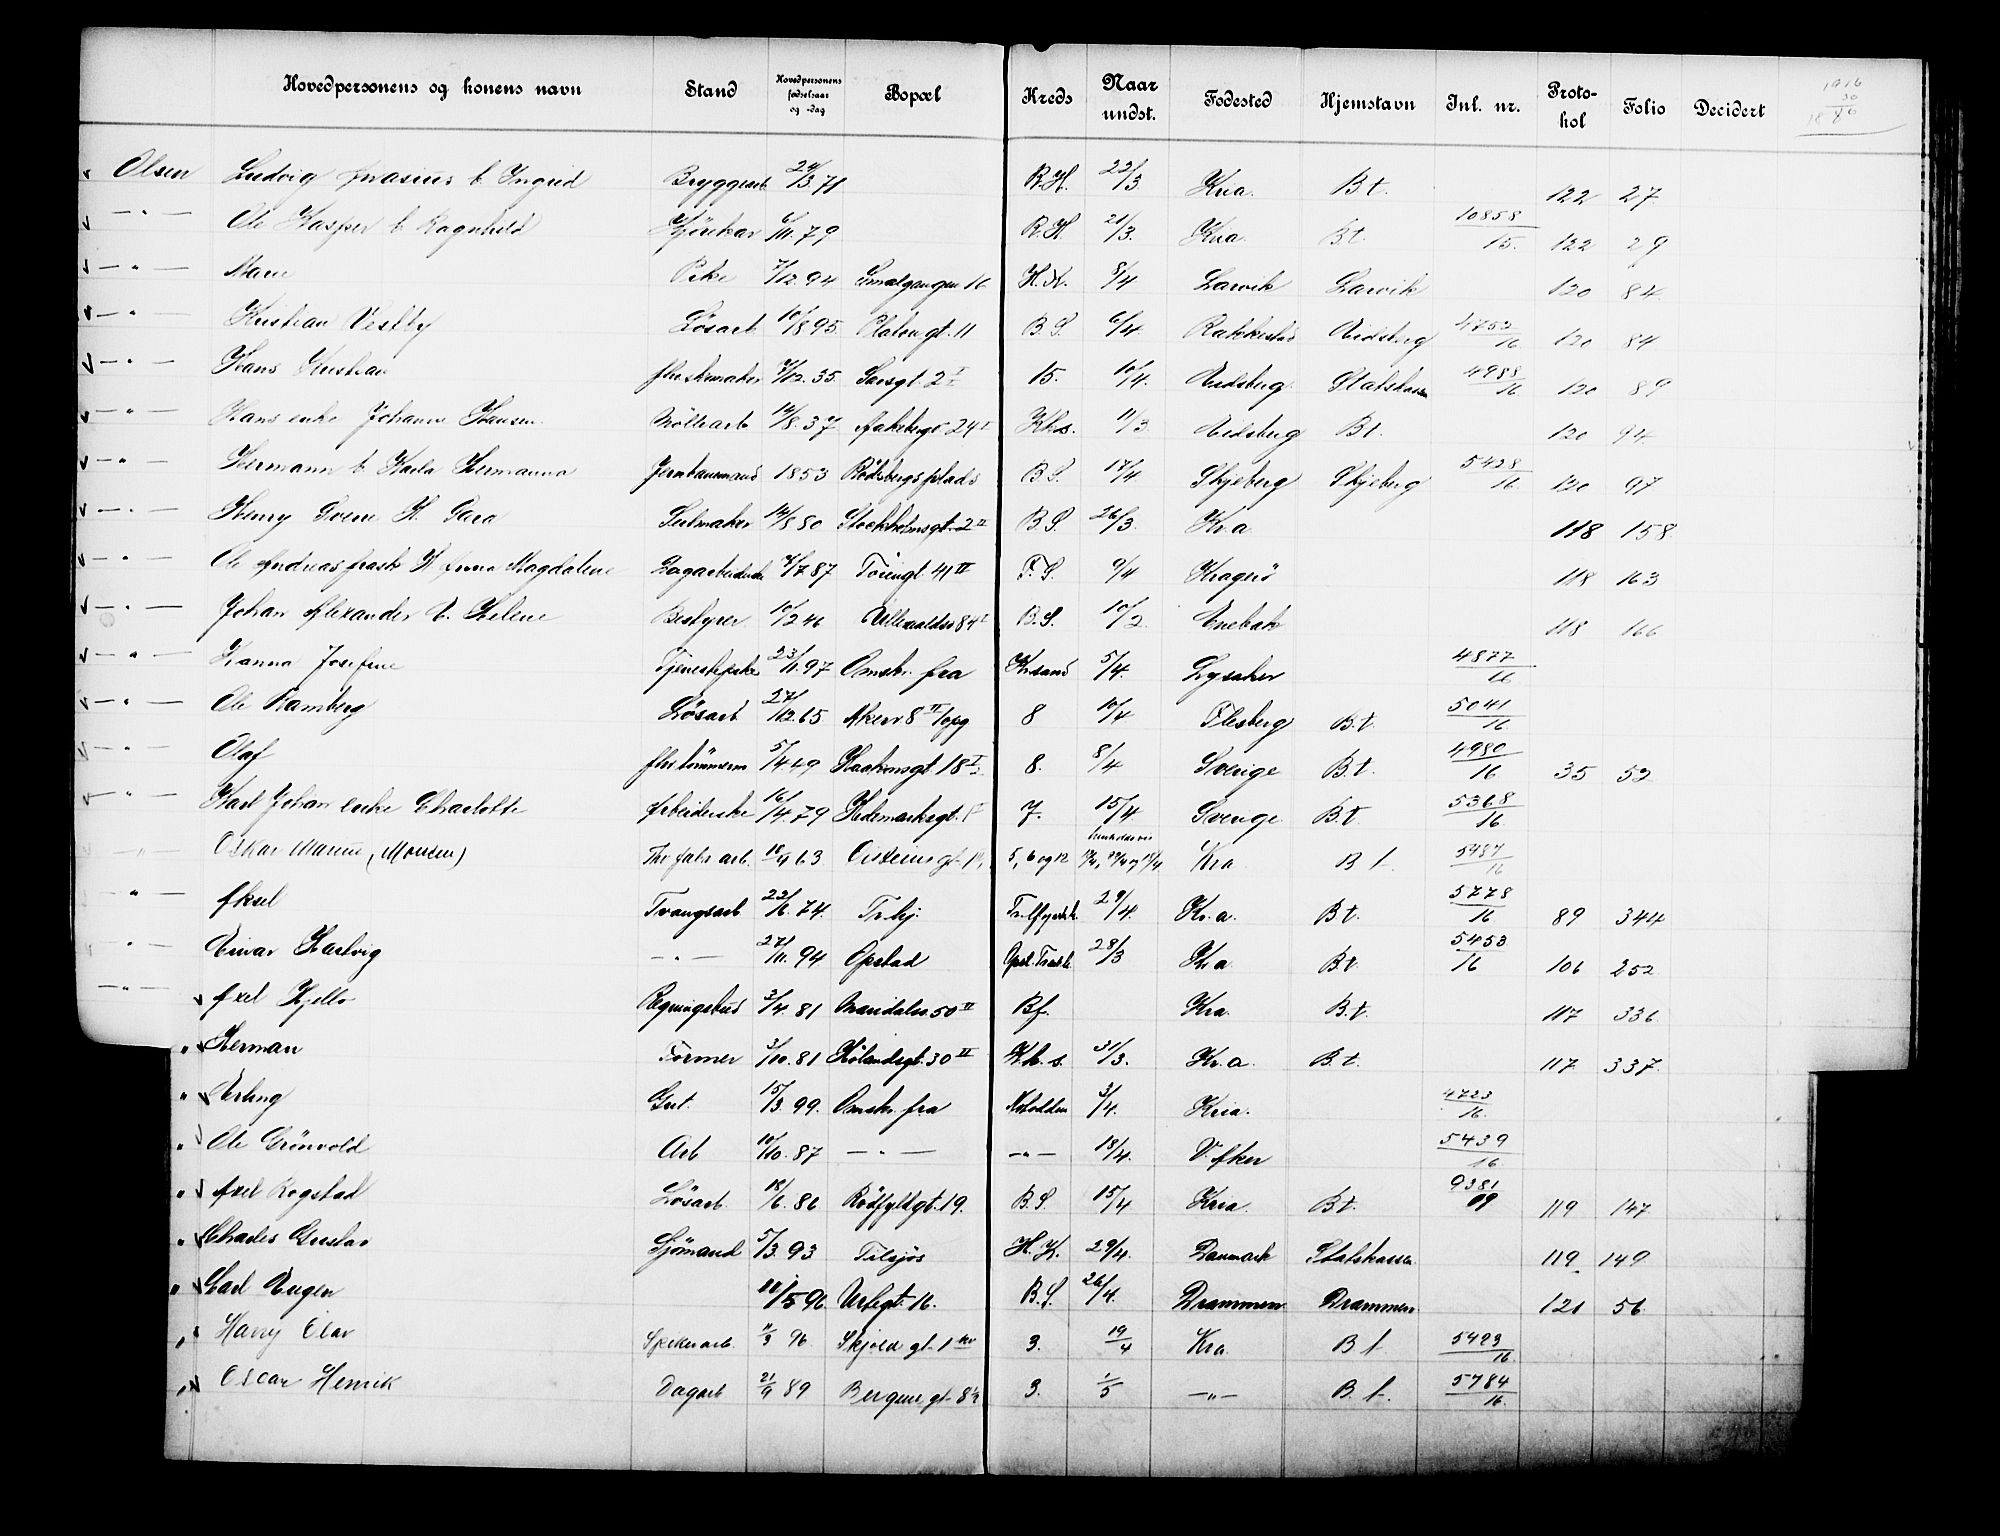 Hovedpersonens og konens navn Stand Hovedpersonens fødselsaar og -dag Bopæl Kreds Naar undst. Fødested Hjemstavn Inl. nr. Protokol Folio Decidert 1916
Olsen Ludvig b. Ingrid Bryggearb 24/3 71 R.H. 22/3 Kria. Bt. 122 27
— " — Ole Kasper b. Ragnhild Kjørekar 6/11. 79 R.H. 21/3. Kria. B.t. 10858/15. 122 29
— " — Marie Pike 7/12. 94 Smalgangen 16 H.N. 8/4 Larvik Larvik 120 84
— " — Kristian Vestby Løsarb 10/8 95. Platougt. 11 B.S. 6/4 Rakkestad Eidsberg 4752/16 120 84
— " — Hans Kristian 7/12. 35. Sarsgt. 2 I 15. 10/4. Eidsberg Statskassen 4988/16 120 89
— " — Hans enke Johanne Hansen Møllearb 14/8. 37 Aakebergv 24 I Khs. 11/3 Eidsberg Bt. 120 94
— " — Hermann b. Karla Hermanna Jernbanemand 1853 Rodsbergs plads B.S. 17/4 Skjeberg Skjeberg 5428/16. 120 97
— " — Henry Sverre H. Sara Seilmaker 14/8 80 Stockholmsgt. 2 II B.S. 26/3. Kr.a 118 158
— " — Ole Andreas frask H. Anna Magdalene Lagarbeider 4/7 87 Torengt 41 IV F.S. 9/4 Kragerø 118 163
— " — Johan Alexander b. Helene Bestyrer 10/2 46 Ullevaalsv 84 I B.S. 10/2 Enebak 118 166
— " — Hanna Josefine Tjenestepike 23/11. 97 Omstr. fra Kr.sand 5/4. Lysaker 4877/16
— " — Ole Ramberg Løsarb 27/12. 65 Akersv 8 II opg 8 10/4 Flesberg B.t. 5041/16
— " — Olaf 5/4. 49 Haakonsgt. 18 I 8. 8/4 Sverige B.t. 4980/16 35 52
" Karl Johan enke Charlotte Arbeiderske 16/4. 79 Hedemarksgt. 7. 15/4 Sverige B.t. 5368/16.
" Oskar Marius (Monsen) 18/9 63 5, 6 og 12 Kra B t. 5487/16
" Aksel Tvangsarb 22/6. 74. Tr.hj. 29/4. Kr.a. B.t. 5778/16 89 344
" Einar Hartvig — " — 27/11. 94 Opstad 28/3 Kr a. B.t. 5453/16 106 252
— " — Axel Hjello Regningsbud 3/4. 81 Mandalsv. 50 II Bf. Kra. B.t. 117 336
" Herman Former 3/10. 81 Hølandsgt. 30 II K.h.s. 31/3. Kr.a. B.t. 117 337
" Erling Gut. 15/3. 99. Omstr. fra Notodden 3/4. Kria. 4723/16.
" Ole Grönvold Arb 10/10. 87 — " — — " — 18/4. V. Aker 5439/16.
" Axel Rogstad Løsarb. 18/6. 86 Rødfyldgt. 19. B.S. 15/4 Kria. B.t. 9381/09 119 147
" Charles Gustav Sjømand 5/3. 93 Tilsjøs H.H. 29/4. Danmark Statskassen 119 149
" Carl Eugen 18/5 96 Urtegt. 16. B.S. 26/4. Drammen Drammen 121 56
" Harry Olav Spikerarb. 11/3 96 Skjold gt. 1 3. 19/4 Kra B t. 5423/16.
" Oscar Henrik Dagarb 21/9 89 Bergens gt. 8 3. 1/5 — " — B. t. 5784/16.